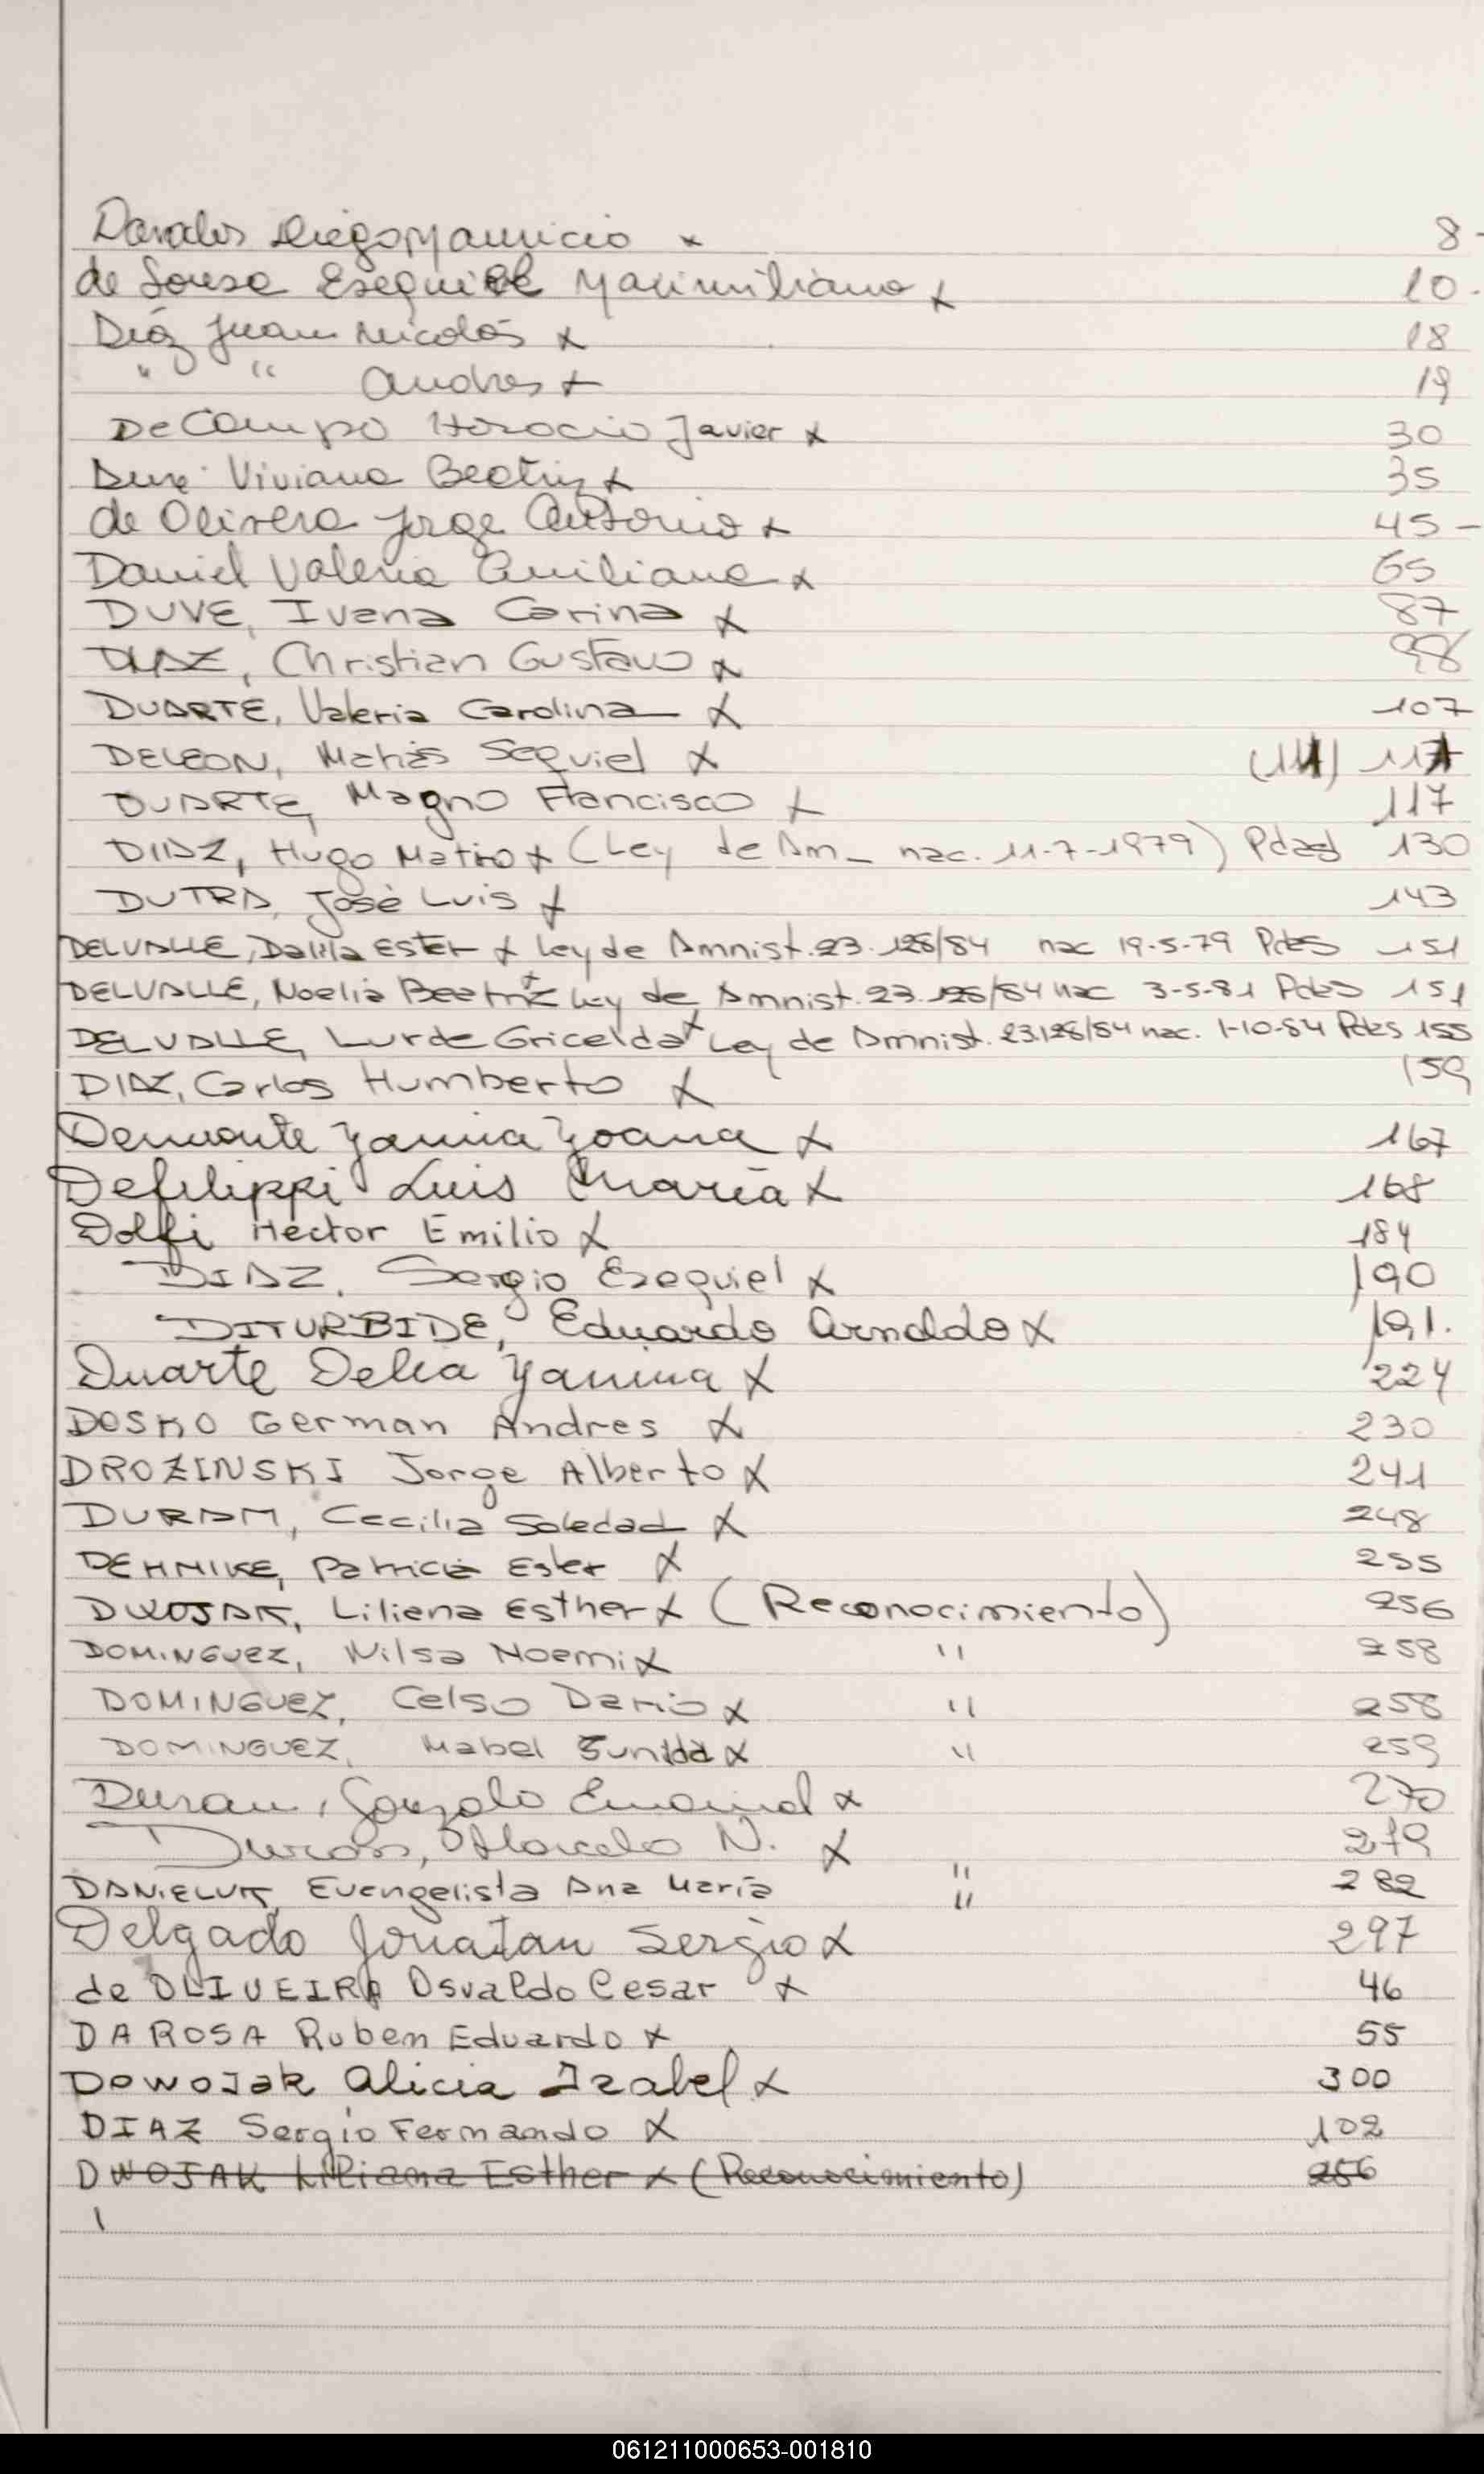 Davalos Diego Mauricio x 8 -
de Sousa Esequiel Maximiliano x 10 -
Diáz Juan Nicolás x 18
" " Andres x 19
De Campo Horocio Javier x 30
Duré Viviana Beatriz x 35
de Olivera Jorge Antonio x 45 -
Daniel Valeria Emiliana x 65
DUVE, Ivana Carina x 87
DIAZ, Christian Gustavo x 98
DUARTE, Valeria Carolina x 107
DELEON, Matias Sequiel x (111) 111
DUARTE, Magno Francisco x 117
DIAZ, Hugo Matiro x (Ley de Am_ nac. 11-7-1979) Pdas 130
DUTRA, José Luis x 143
DELVALLE, Dalila Ester x Ley de Amnist. 23.128/84 nac 19-5-79 Pdas 151
DELVALLE, Noelia Beatriz x Ley de Amnist. 23.128/84 nac 3-5-81 Pdas 151
DELVALLE, Lurde Gricelda x Ley de Amnist. 23.128/84 nac. 1-10-84 Pdas 155
DIAZ, Carlos Humberto x 159
Demonte Yanina Yoana x 167
Defilippi Luis María x 168
Dolfi Hector Emilio x 184
DIAZ, Sergio Ezequiel x 190
DITURBIDE, Eduardo Arnaldo x 191.
Duarte Delia Yanina x 224
DOSKO German Andres x 230
DROZINSKI Jorge Alberto x 241
DURAM, Cecilia Soledad x 248
DEHMIKE, Patricia Ester x 255
DWOJAK, Liliana Esther x (Reconocimiento) 256
DOMINGUEZ, Nilsa Noemi x " 258
DOMINGUEZ, Celso Dario x " 258
DOMINGUEZ, Mabel x " 259
Duran, Gonzalo Emanuel x 270
Duran, Marcelo N. x " 279
DANIELUK, Evangelista Ana María " 282
Delgado Jonatan Sergio x 297
de OLIVEIRA Osvaldo Cesar x 46
DA ROSA Ruben Eduardo x 55
Dowojak Alicia Izabel x 300
DIAZ Sergio Fernando x 102
DWOJAK Liliana Esther x (Reconocimiento) 256
061211000653-001810